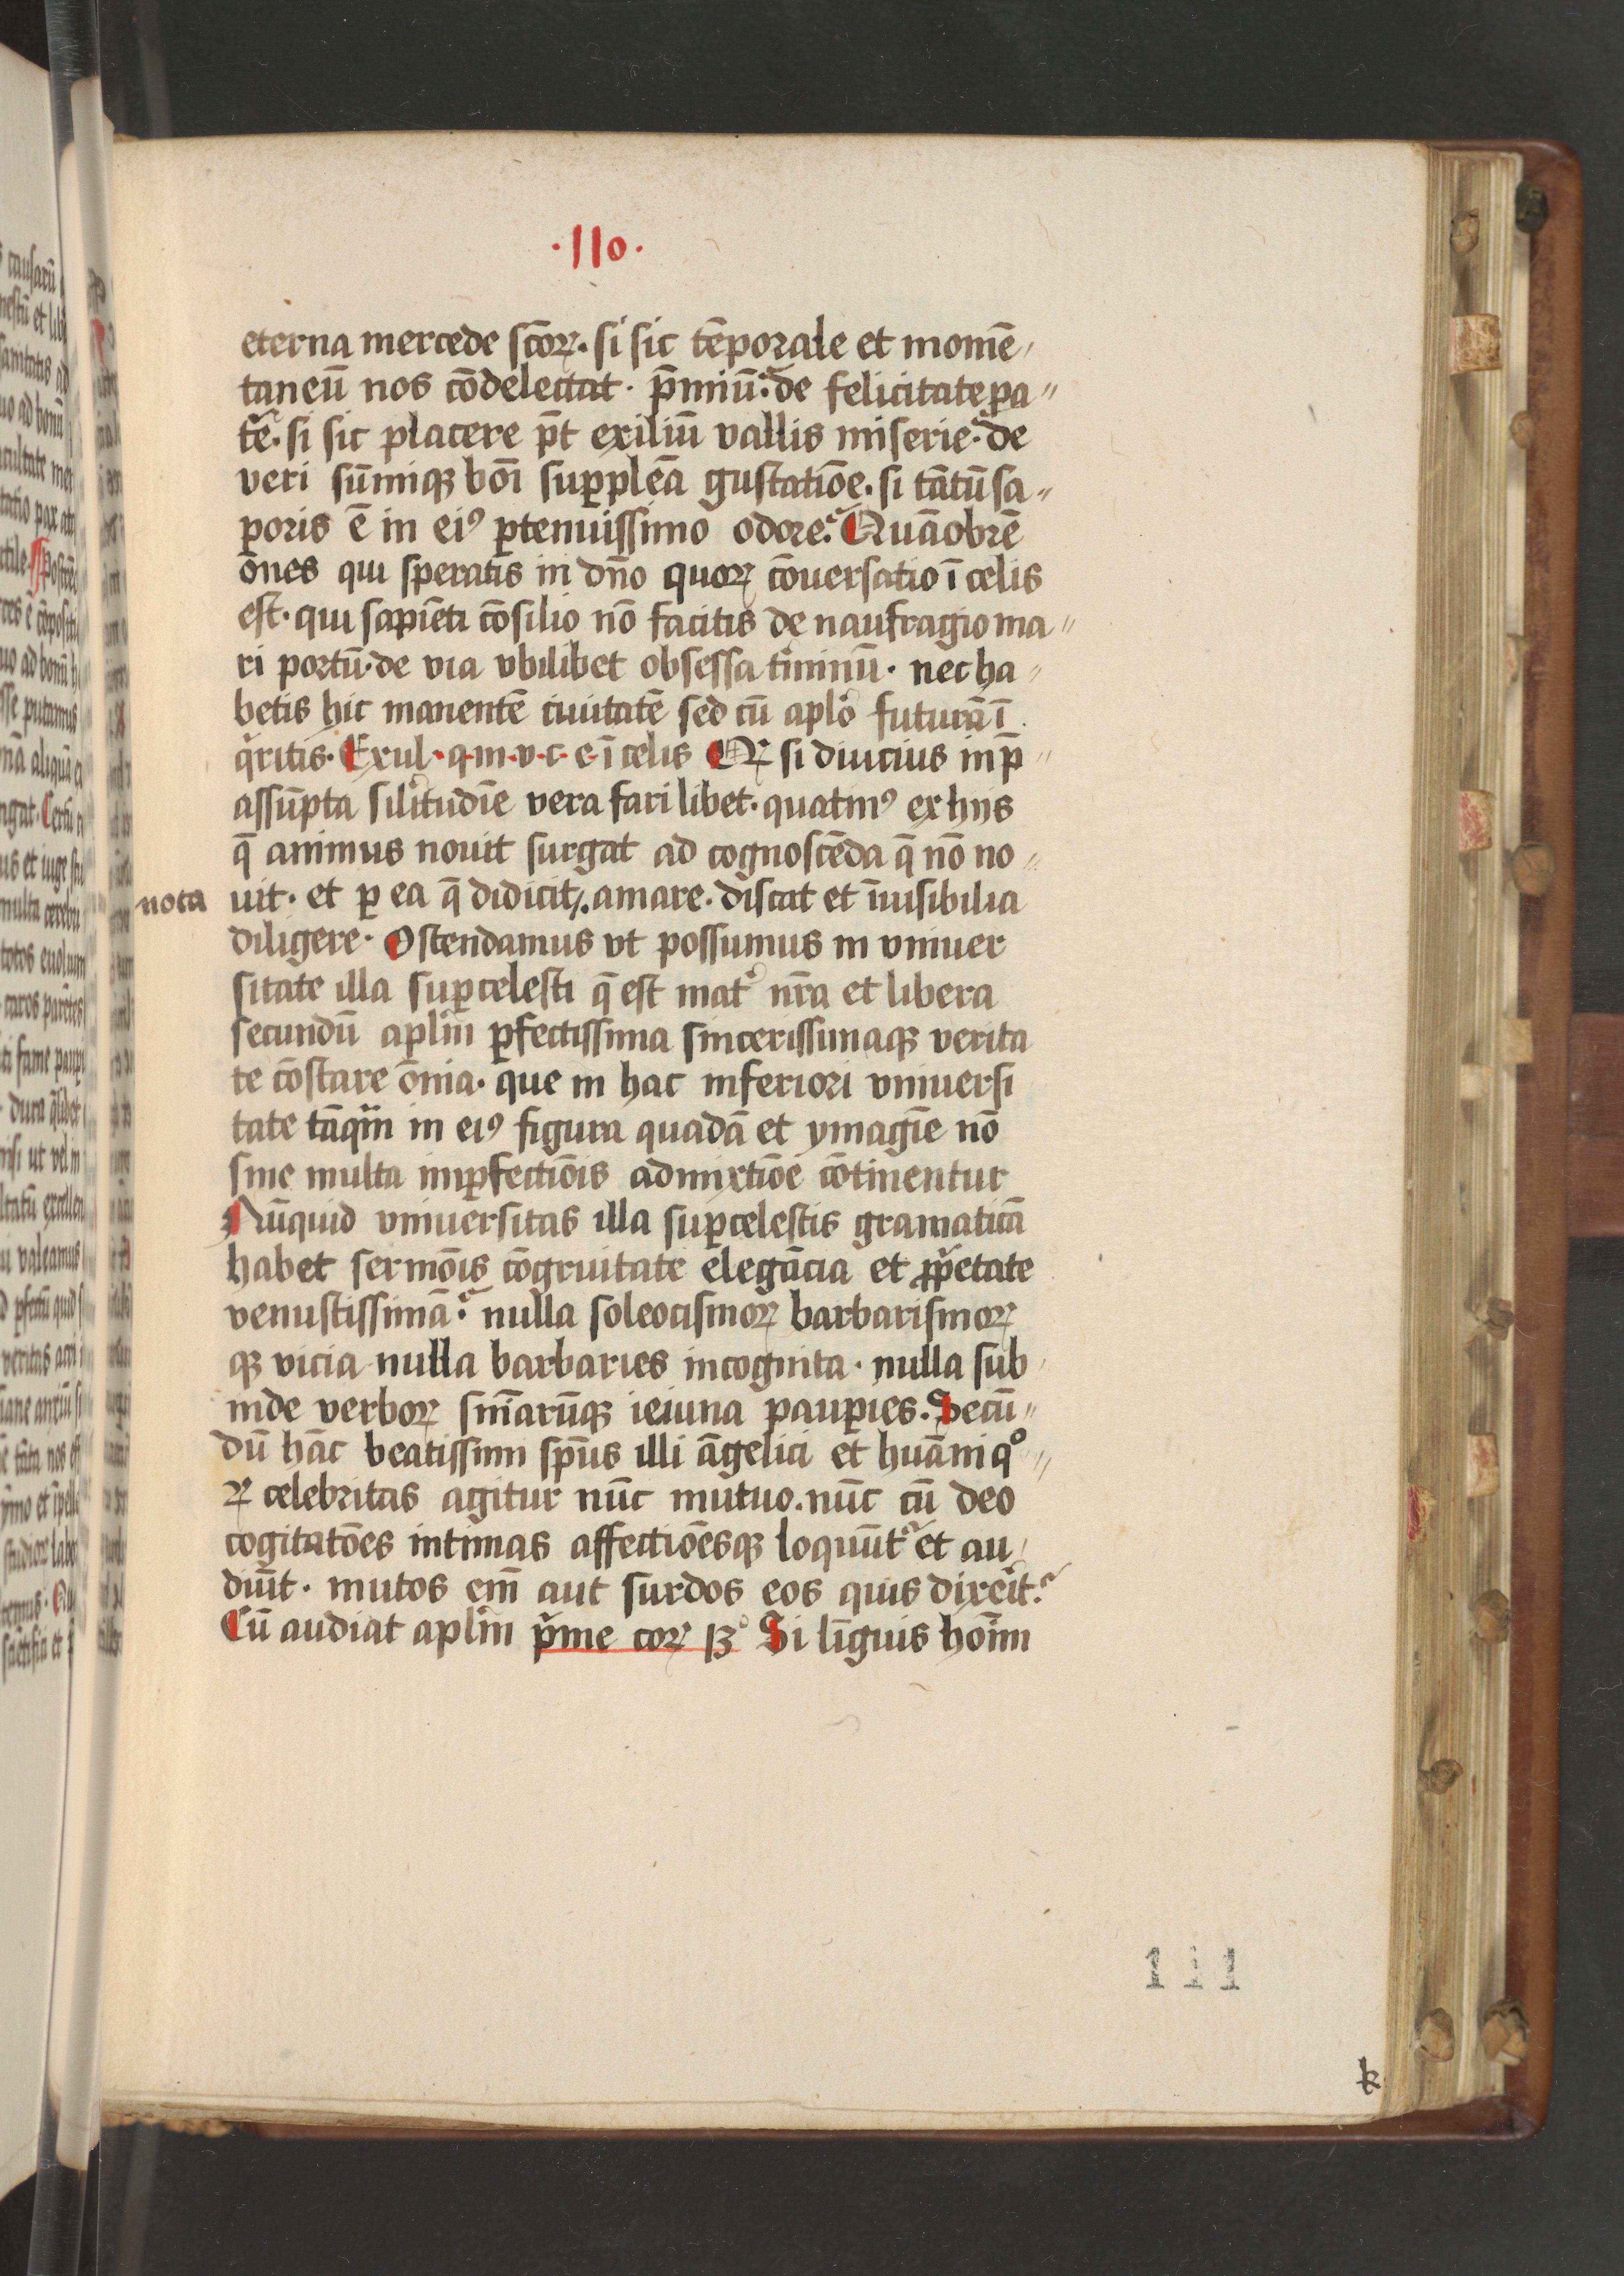 ·110·
eterna mercede sc̄oꝝ. si sic tēporale et momē
taneū nos cōdelectat · p̄miū. de felicitate pa
tē. si sic placere pn̄t exiliū vallis miserie. de
veri sūmiqꝫ boī supplēa gustatiōe. si tātū sa
poris ē in eiꝰ ꝑtenuissimo odore. Quāobrē
ōnes qui speratis in dn̄o quoꝝ cōuersatio ī celis
est · qui sapiēti cōsilio nō facitis de naufragio ma
ri portū · de via vbilibet obsessa t̉minū · nec ha
betis hic manentē ciuitatē sed cū aplō futurā ī
q̄ritis. Exul · q · m · v · c · e · ī celis Qꝝ si diucius in p̄
assūpta sil̉itudīe vera fari libet · quatinꝰ ex hijs
q̄ animus nouit surgat ad cognoscēda q̄ nō no
uit · et ꝑ ea q̄ didicit amare · discat et īuisibilia
nota
diligere · Ostendamus vt possumus in vniuer
sitate illa suꝑcelesti q̄ est mat̉ nr̄a et libera
secundū apl̄m ꝑfectissima sincerissimaqꝫ verita
te cōstare ōnia · que in hac inferiori vniuersi
tate tāq̄m in eiꝰ figura quadā et ymagīe nō
sine multa imꝑfectiōis admixtiōe cōtinentur
Nūquid vniuersitas illa suꝑcelestis gramaticā
habet sermōis cōgruitate elegācia et ꝓp̉etate
venustissimā · nulla soleocismoꝝ barbarismoꝝ
qꝫ vicia nulla barbaries incognita · nulla sub
inde verboꝝ sn̄iarūqꝫ ieiuna pauꝑies. Secū
dū hāc beatissimi sp̄us illi āgelici et huāni qͦ
ꝝ celebritas agitur nūc mutuo. nūc cū deo
cogitatōes intimas affectiōesqꝫ loquūt̉ et au
diūt · mutos em̄ aut surdos eos quis dixeīt.
Cū audiat apl̄m p̉me coꝝ 13° Si līguis hoīm
111
k